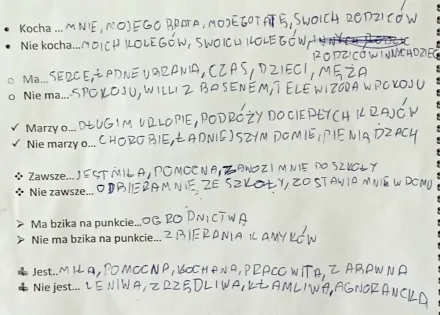 • Kocha ... MNIE, MOJEGO BRATA, MOJEGO TATĘ, SWOICH RODZICÓW
• Nie kocha... MOICH KOLEGÓW, SWOICH KOLEGÓW,
RODZICÓW INNYCH DZIECI
○ Ma... SERCE, ŁADNE UBRANIA, CZAS, DZIECI, MĘŻA
○ Nie ma... SPOKOJU, WILLI Z BASENEM, TELEWIZORA W POKOJU
✓ Marzy o... DŁUGIM URLOPIE, PODRÓŻY DO CIEPŁYCH KRAJÓW
✓ Nie marzy o... CHOROBIE, ŁADNIEJSZYM DOMIE, PIENIĄDZACH
❖ Zawsze... JEST MIŁA, POMOCNA, ZAWOZI MNIE DO SZKOŁY
❖ Nie zawsze... ODBIERA MNIE ZE SZKOŁY, ZOSTAWIA MNIE W DOMU
➢ Ma bzika na punkcie... OGRODNICTWA
➢ Nie ma bzika na punkcie... ZBIERANIA KAMYKÓW
Jest... MIŁA, POMOCNA, KOCHANA, PRACOWITA, ZABAWNA
Nie jest... LENIWA, ZRZĘDLIWA, KŁAMLIWA, AGNORANCKA